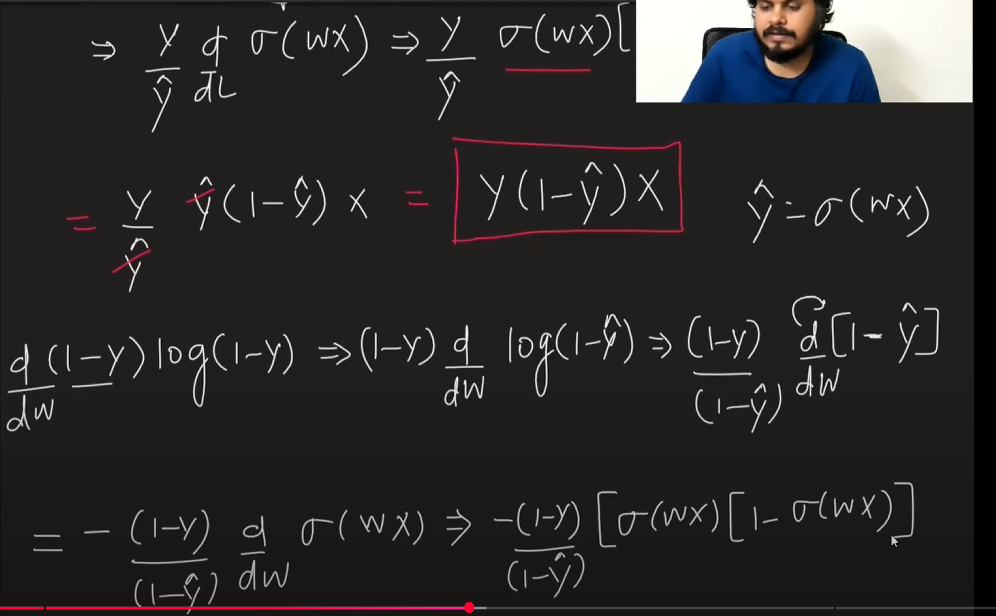 ⇒ Y/ŷ d/dL σ(WX) ⇒ Y/ŷ σ(WX)[
= Y/ŷ ŷ(1-ŷ) X = Y(1-ŷ)X ŷ = σ(WX)
d/dW (1-Y) log(1-Y) ⇒ (1-Y) d/dW log(1-ŷ) ⇒ (1-Y)/(1-ŷ) d/dW [1-ŷ]
= - (1-Y)/(1-ŷ) d/dW σ(WX) ⇒ -(1-Y)/(1-ŷ) [σ(WX)[1- σ(WX)]